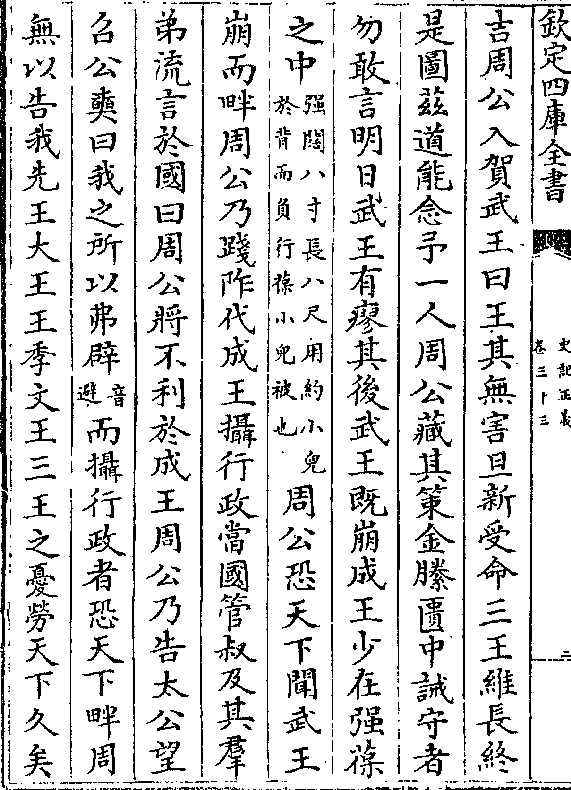 欽定四庫全書
史記正義
卷三十三
二
吉周公入賀武王曰王其無害旦新受命三王維長終
是圖茲道能念予一人周公藏其策金縢匱中誡守者
勿敢言明日武王有瘳其後武王既崩成王少在强葆
之中强闊八寸長八尺用約小兒於背而負行葆小兒被也周公恐天下聞武王
崩而畔周公乃踐阼代成王攝行政當國管叔及其羣
弟流言於國曰周公將不利於成王周公乃告太公望
召公奭曰我之所以弗辟音避而攝行政者恐天下畔周
無以告我先王大王王季文王三王之憂勞天下久矣